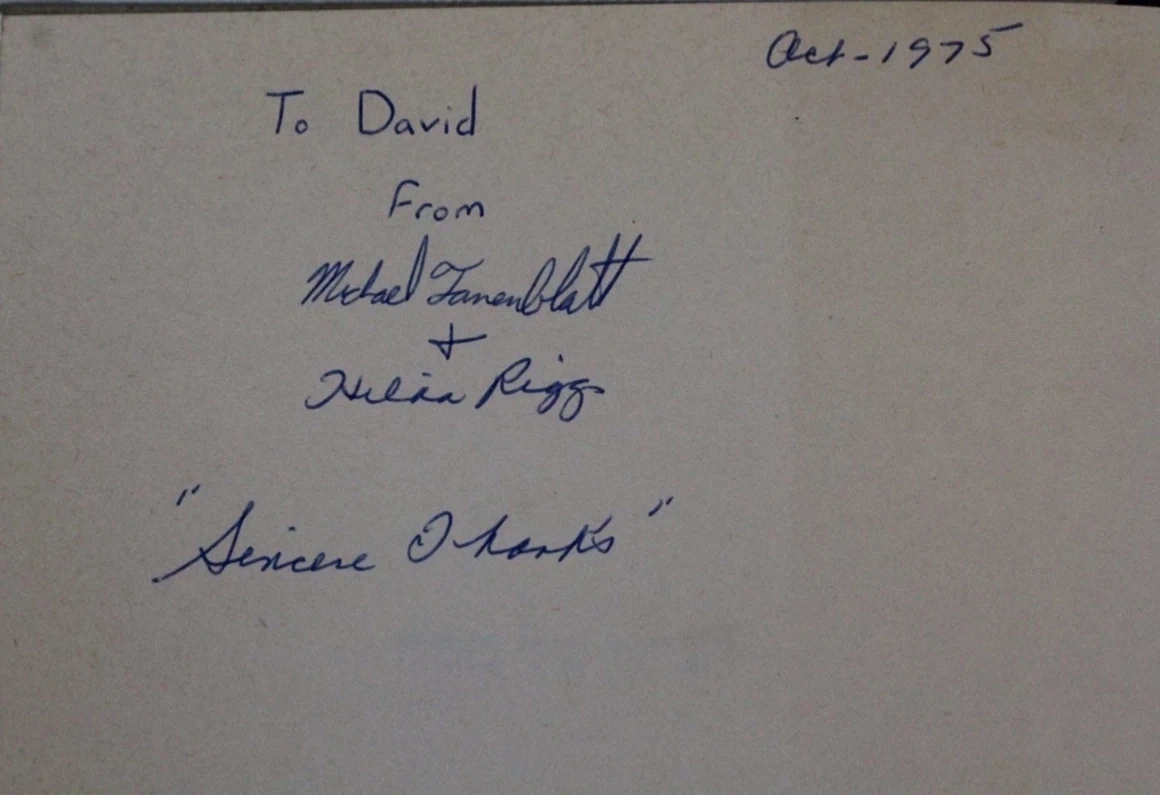 Oct-1975
To David
From
Michael Tanenblatt
+
Hilda Riggs
"Sincere Thanks"